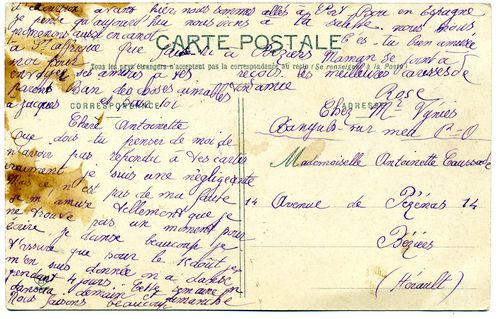 avant hier nous sommes allés à Port Bou en Espagne
je pense qu'aujourd'hui nous irons à la
promènerons aux en and nous nous
CARTE POSTALE
à St affrique que à Béziers
Tous les pays étrangers n'acceptent pas la correspondance au recto (Se renseigner à la Poste)
moi pour Maman se joint à
envoyer ses amitiés à tes reçois les meilleures caresses de
parents bien des choses aimables ton amie
à Jacques et Rose
CORRESPONDANCE
ADRESSE
Chez Me Vynes
Banyuls-sur mer P-O
Chère Antoinette
Que dois tu penser de moi de
n'avoir pas répondu à tes cartes
vraiment je suis une négligeante
Mais ce n'est pas de ma faute
je m'amuse tellement que je
ne trouve pas un moment pour
écrire je danse beaucoup je
t'assure que pour le 15 août je
m'en suis donnée on a dansé
pendant 4 jours
dansera demain cette semaine on
Nous faisons beaucoup dimanche
Mademoiselle Antoinette
14 Avenue de Pézenas 14
Béziers
(Hérault)